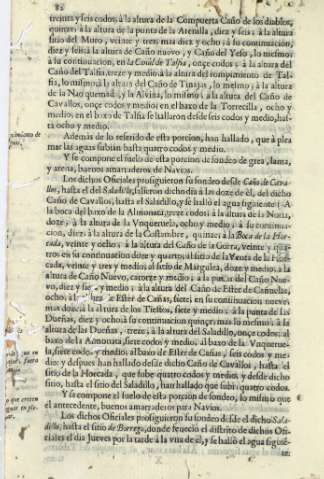 82
treinta y seis codos, à la altura de la Compuerta Caño de los diablos,
quinze, à la altura de la punta de la Arenilla, diez y seis, à la altura
sitio del Muro, veinte y tres mas diez y ocho, à su continuacion,
diez y seis, à la altura de Caño nuevo, y Caño del Yeso, lo mesmo, à
su continuacion, en la Canàl de Talsia, onçe codos, à la altura del
Caño del Talsia, treze y medio, à la altura del rompimiento de Tal-
sia, lo mismo, à la altura del Caño de Tinajas, lo mesmo, à la altura
de la Nao quemada, lo mismo, à la altura del Caño de
Cavallos, onçe codos y medio, en el baxo de la Torrecilla, ocho y
medio, en el baxo de Talsia se hallaron desde seis codos y medio, has-
ta ocho y medio.
Ademàs de lo referido de esta porcion, han hallado, que à plea
mar las aguas subian hasta quatro codos y medio.
Y se compone el suelo de esta porcion de sondeo de greda, lama,
y arena, buenos amarraderos de Navios.
Los dichos Oficiales prosiguieron su sondeo desde Caño de Cava-
llos, hasta el del Saladillo, salieron dicho dia à las doze de èl, del dicho
Caño de Cavallos, hasta el Saladillo, y se hallò el agua siguiente: A
la boca del baxo de la Almonata, treze codos, à la altura de la Noria,
doze, à la altura de la Vnqueruela, ocho y medio, à su continua-
cion, diez, à la altura de la Costumbre, quinze, à la Boca de la Hor-
cada, veinte y ocho, à la altura del Caño de la Garra, veinte y qua-
tro en su continuacion doze y quarto, al sitio de la Venta de la Hor-
cada, veinte y tres y medio, al sitio de Margulea, doze y medio, à la
altura de Caño Nuevo, catorze y medio, à la punta del Caño Nue-
vo, diez y seis y medio, à la altura del Caño de Ester de Cañuelas,
ocho, de Ester de Cañas, siete, en su continuacion nueve
mas doze, à la altura de los Tiestos, siete y medio, à la punta de las
Dueñas, diez y ocho, à su continuacion quinze, mas lo mismo, à la
altura de las Dueñas, treze, à la altura del Saladillo, onçe codos, al
baxo de la Almonata, siete codos y medio, al baxo de la Vnquerue-
la, siete codos y medio, al baxo de Ester de Cañas, seis codos y me-
dio; y despues han hallado desde dicho Caño de Cavallos, hasta el
sitio de la Horcada, que sube quatro codos y medio, y desde dicho
sitio, hasta el sitio del Saladillo, han hallado que sube quatro codos.
Y se compone el suelo de esta porcion de sondeo, lo mismo que
el antecedente, buenos amarraderos para Navios.
Los dichos Oficiales prosiguieron su sondeo desde el dicho Sala-
dillo, hasta el sitio de Borrego, donde feneciò el distrito de dichos Ofi-
ciales el dia Jueves por la tarde à la vna de èl, y se hallò el agua siguië-
te: